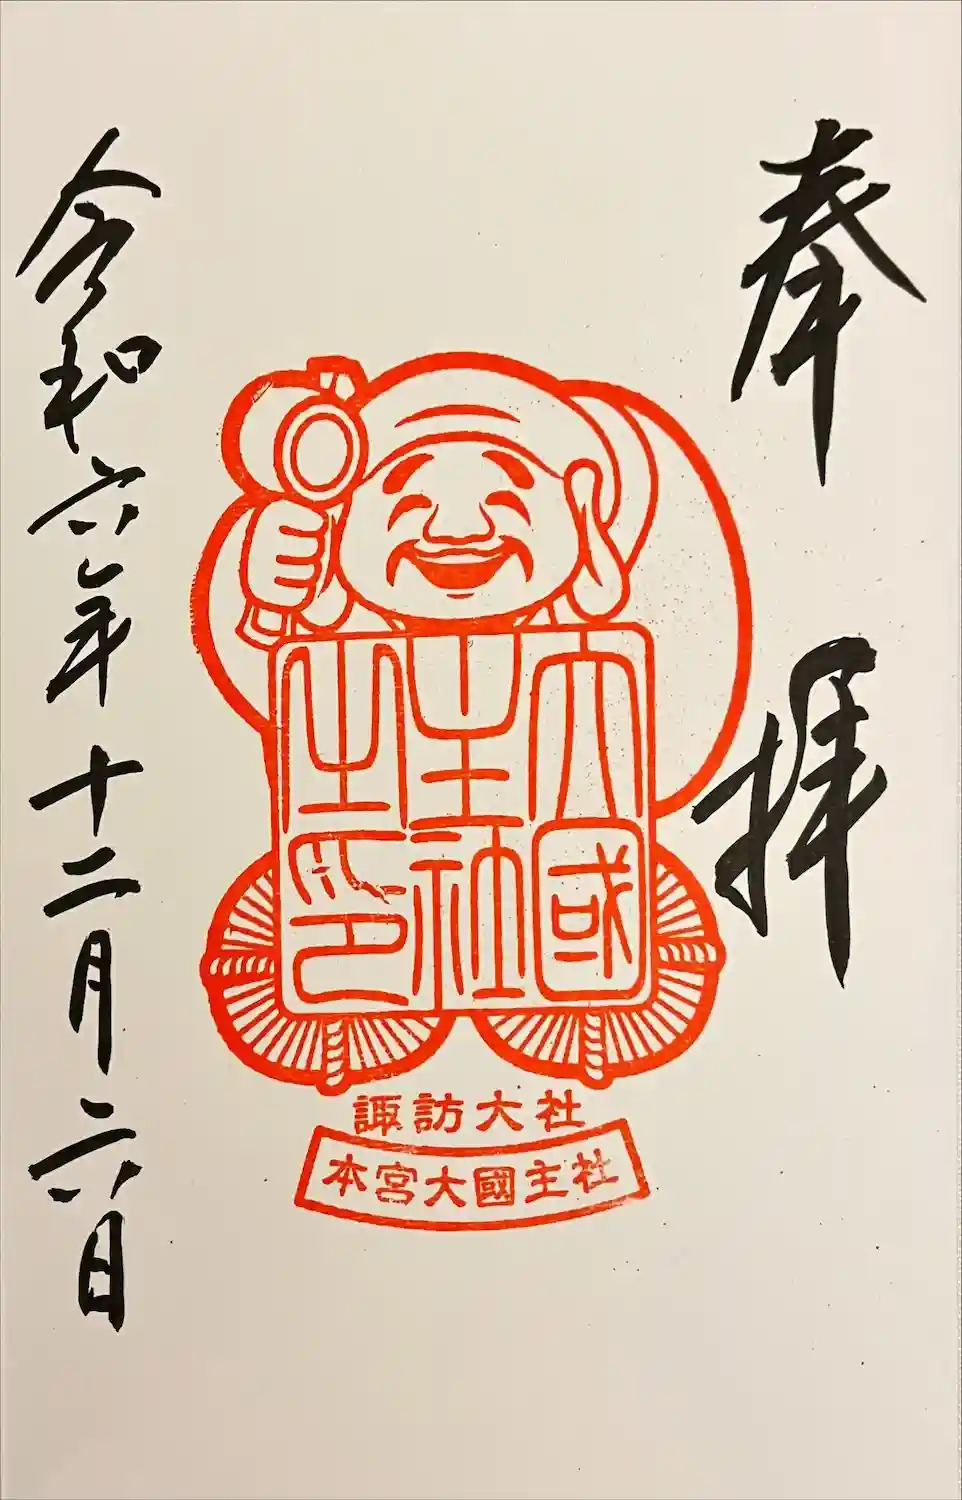 奉拝
大國
主社
之印
諏訪大社
本宮大國主社
令和六年十二月六日